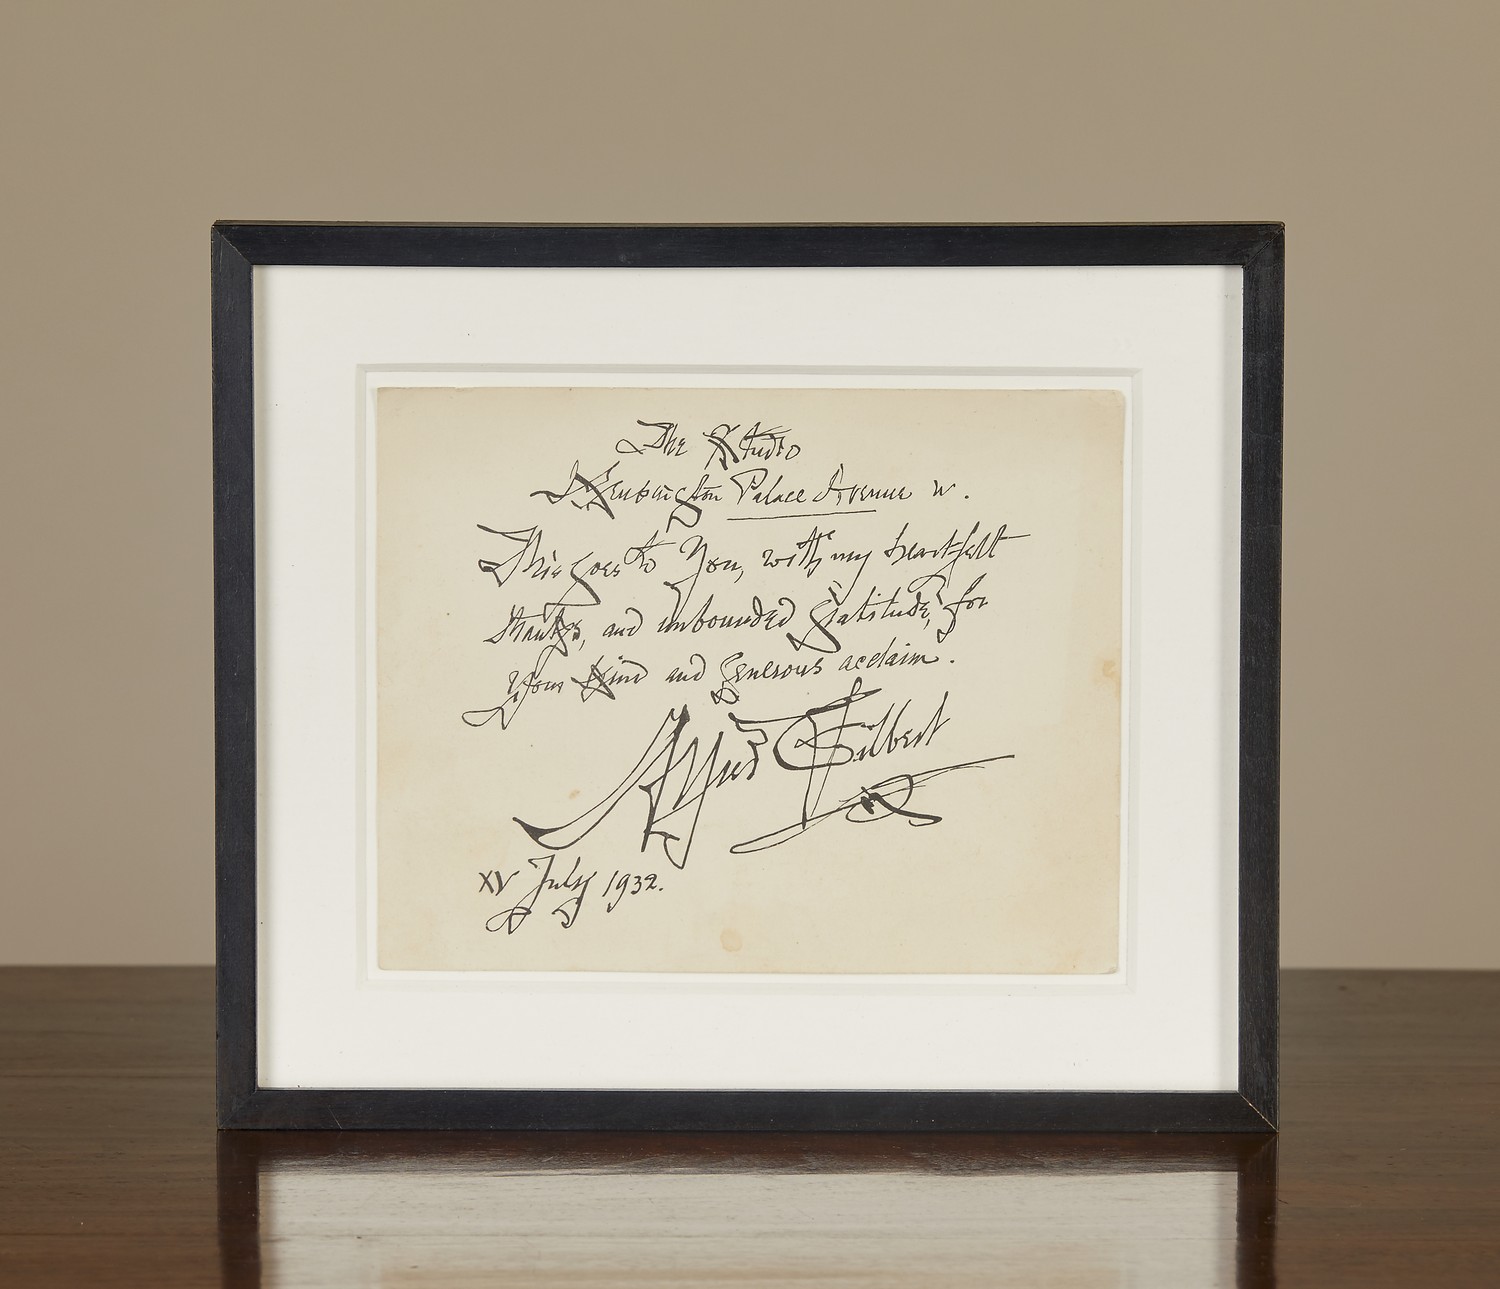 The Studio
Kensington Palace Avenue W.
This goes to You, with my heartfelt
thanks, and unbounded gratitude, for
Your kind and generous acclaim.
Alfred Gilbert
XV July 1932.